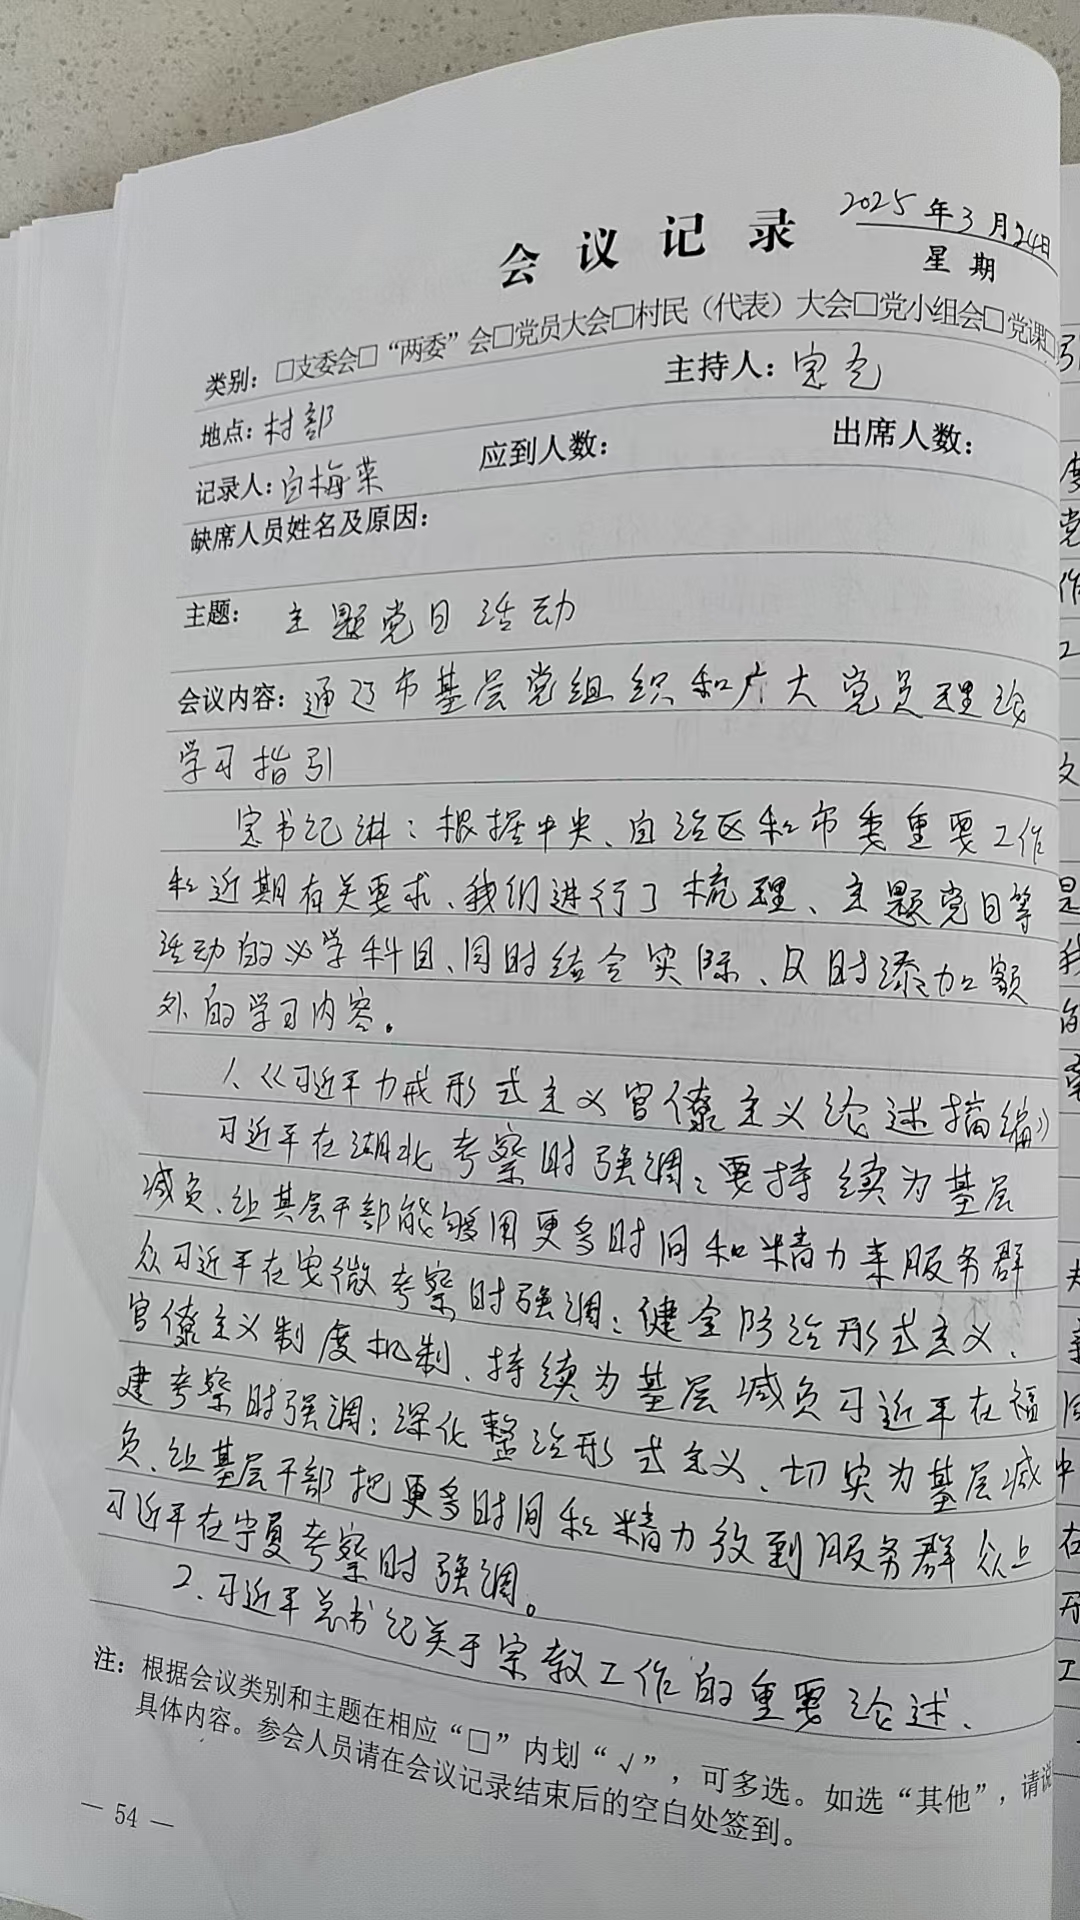 会议记录
2025年3月24日
星期
类别：□支委会□“两委”会□党员大会□村民（代表）大会□党小组会□党课□
地点：村部 主持人：
记录人：白梅荣 应到人数： 出席人数：
缺席人员姓名及原因：
主题：主题党日活动
会议内容：通辽市基层党组织和广大党员理论
学习指引
书记讲：根据中央、自治区和市委重要工作
和近期有关要求、我们进行了梳理、主题党日等
活动的必学科目、同时结合实际、及时添加额
外的学习内容。
1、《习近平力戒形式主义官僚主义论述摘编》
习近平在湖北考察时强调：要持续为基层
减负、让基层干部能够用更多时间和精力来服务群
众习近平在安徽考察时强调：健全防治形式主义、
官僚主义制度机制、持续为基层减负习近平在福
建考察时强调：深化整治形式主义、切实为基层减
负、让基层干部把更多时间和精力放到服务群众上
习近平在宁夏考察时强调。
2．习近平总书记关于宗教工作的重要论述、
注：根据会议类别和主题在相应“□”内划“√”，可多选。如选“其他”，请说
具体内容。参会人员请在会议记录结束后的空白处签到。
— 54 —